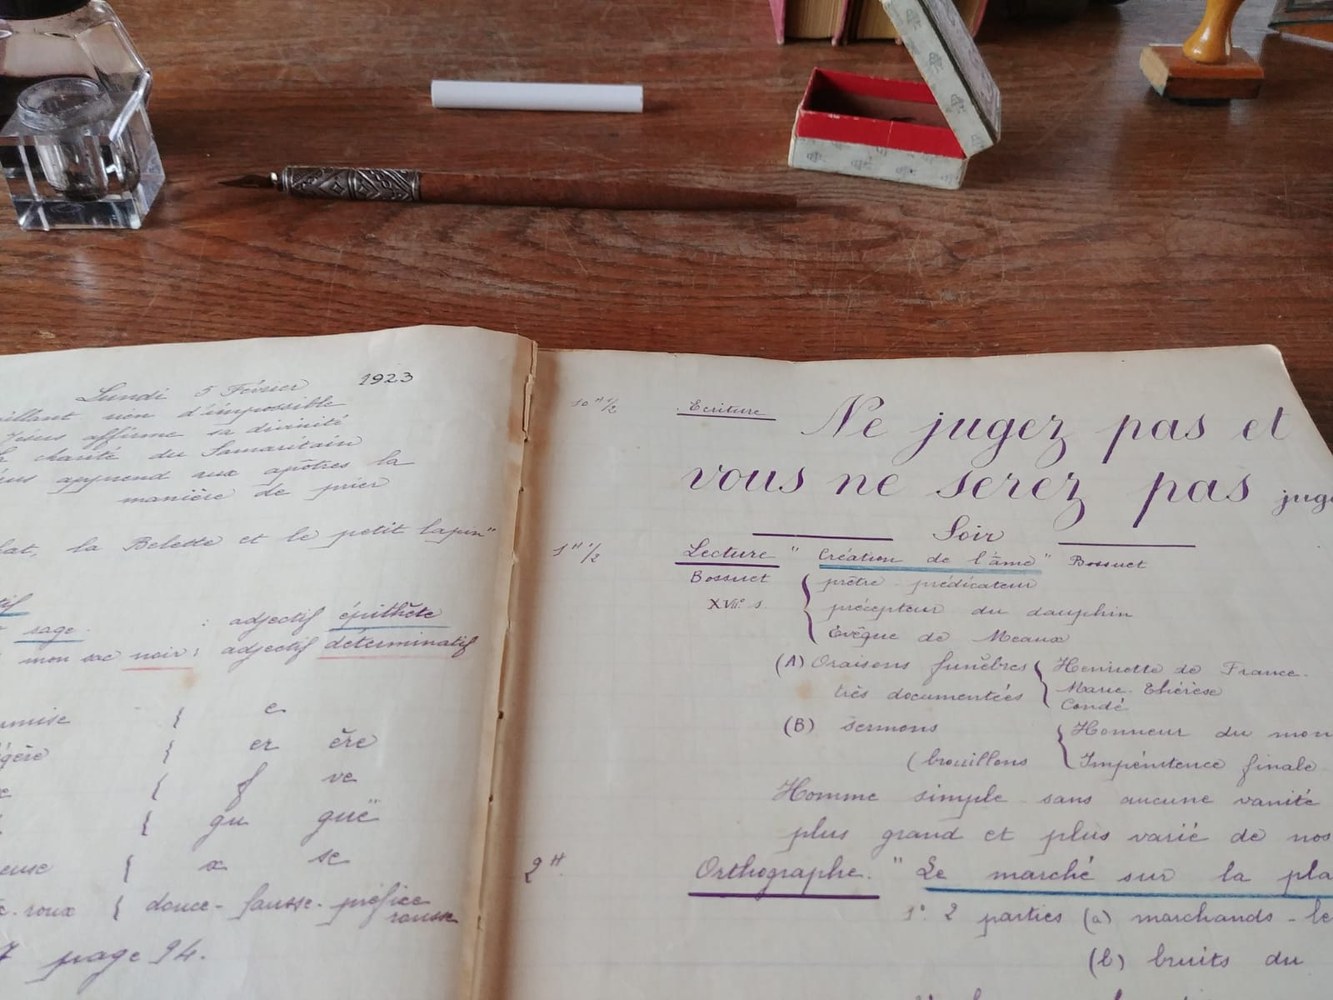 Lundi 5 Février 1923
non d'impossible
Jésus affirme sa divinité
charité du Samaritain
apprend aux apôtres la
manière de prier
la Belette et le petit lapin"
sage : adjectif épithète
mon sac noir : adjectif déterminatif
{ e
{ er ère
{ f ve
{ gu guë
{ x se
roux { douce - fausse - préfixe
rousse
page 94.
10H 1/2 Ecriture Ne jugez pas et
vous ne serez pas
Soir
1H 1/2 Lecture " Création de l'âme " Bossuet
Bossuet { prêtre - prédicateur
XVIIe s { précepteur du dauphin
{ Evêque de Meaux
(A) Oraisons funèbres { Henriette de France.
très documentées { Marie-Thérèse
{ Condé
(B) sermons { Honneur du
(brouillons { Impénitence finale
Homme simple sans aucune vanité
plus grand et plus varié de nos
2H Orthographe. " Le marché sur la
1° 2 parties (a) marchands -
(b) bruits du